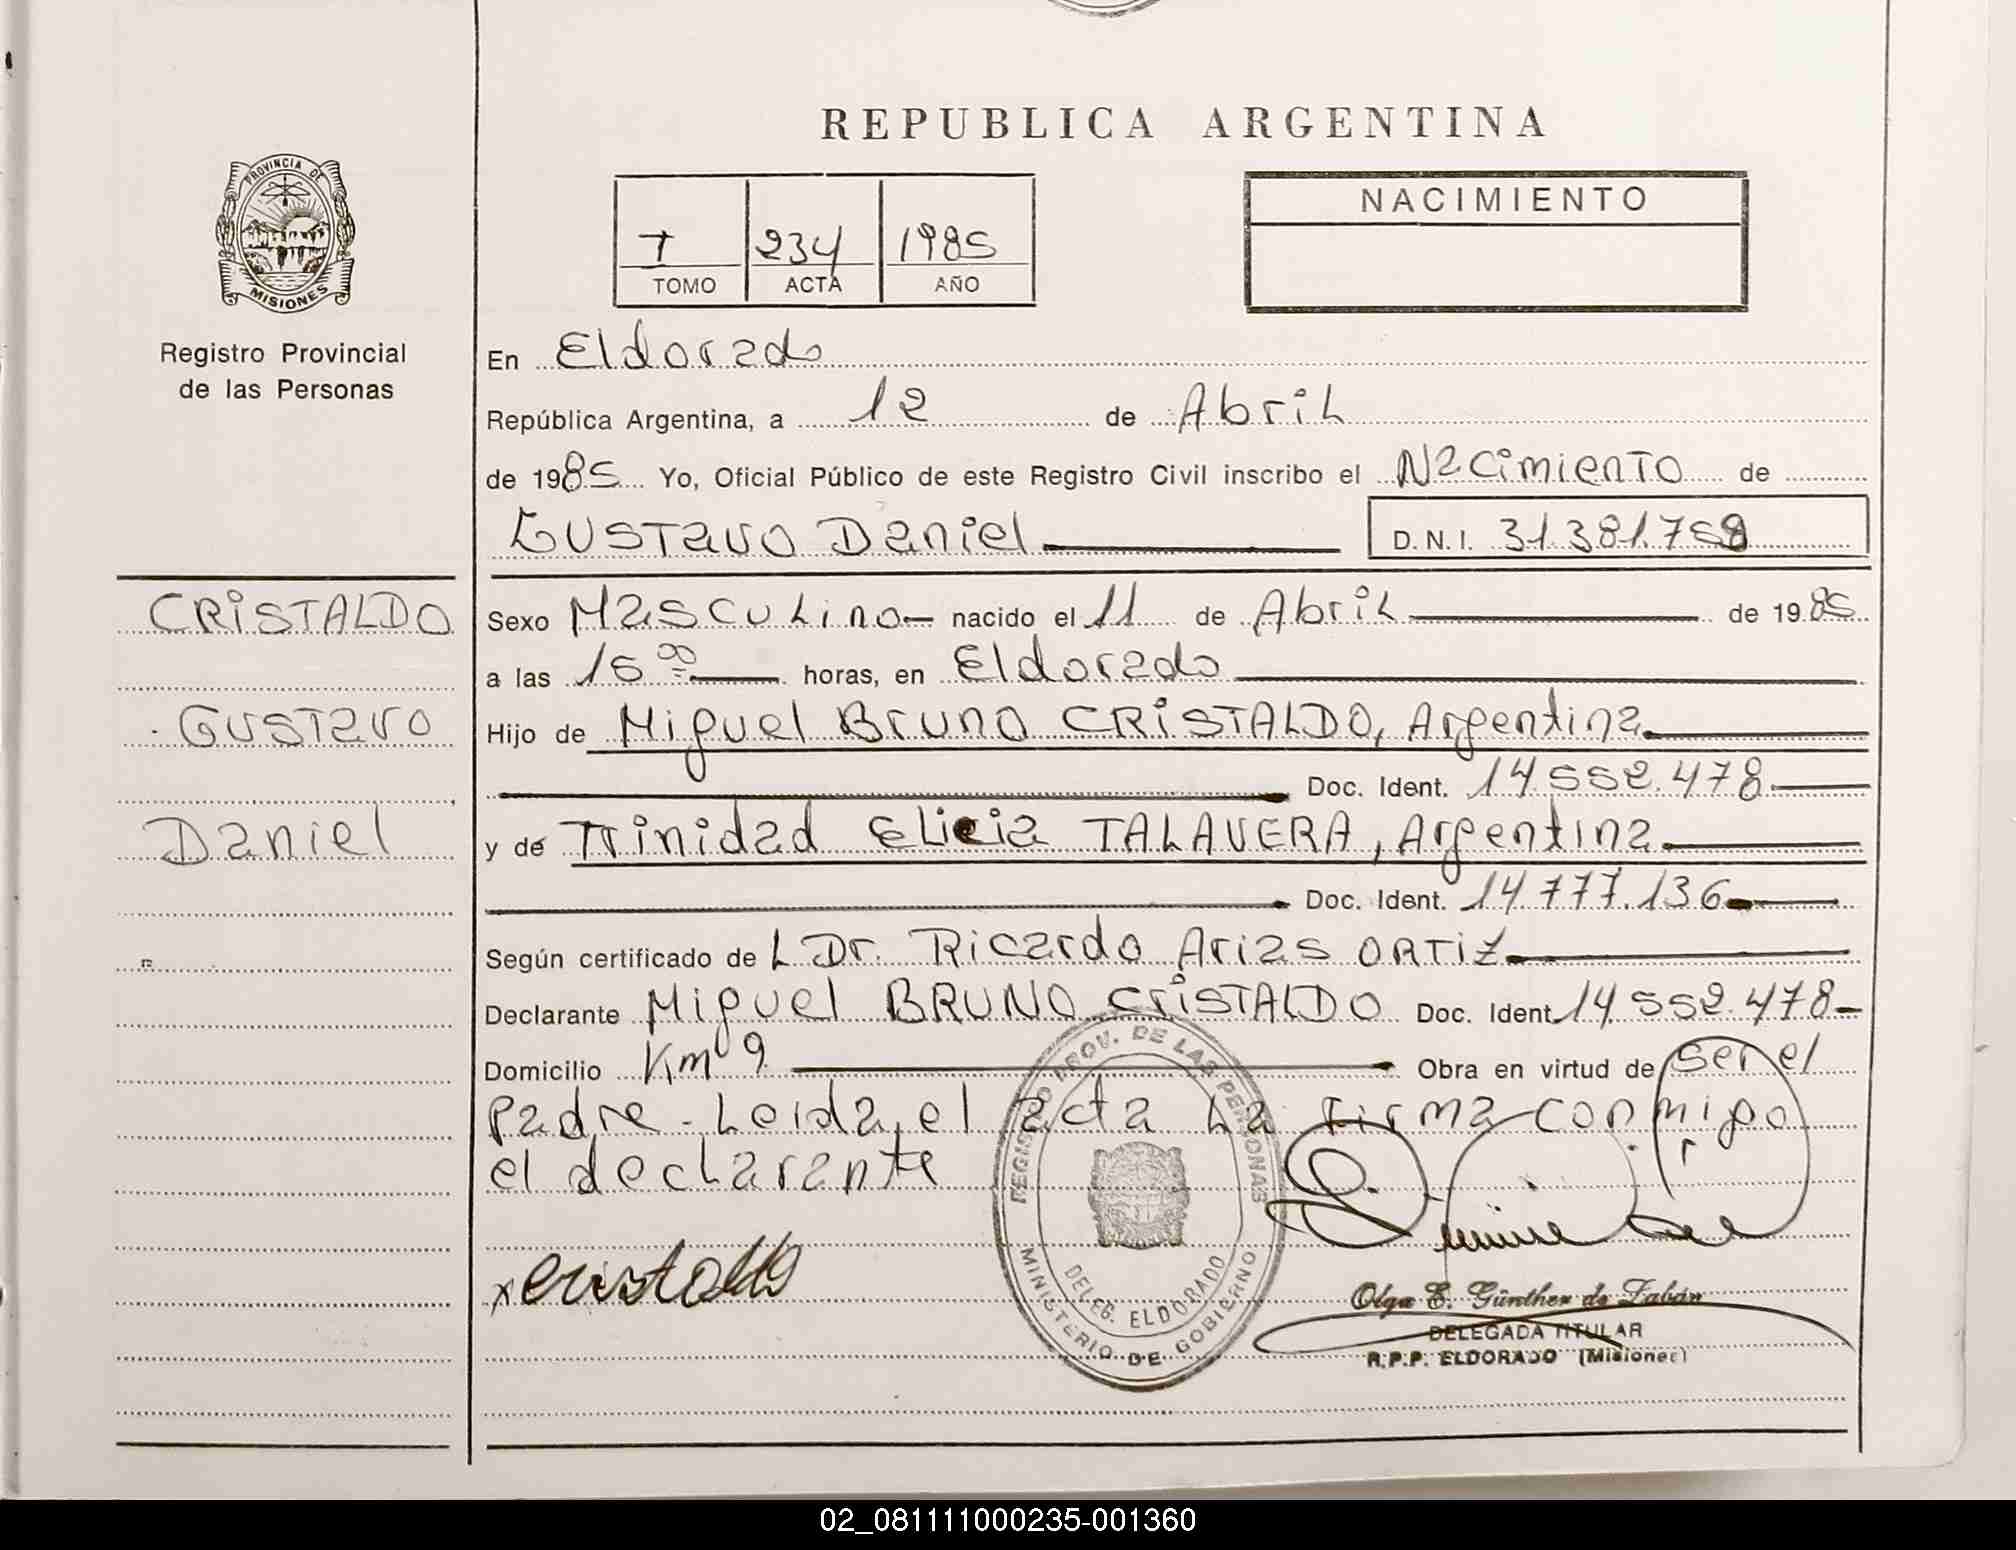 REPUBLICA ARGENTINA
PROVINCIA DE
MISIONES
Registro Provincial
de las Personas
T 234 1985
TOMO ACTA AÑO
NACIMIENTO
En Eldorado
República Argentina, a 12 de Abril
de 1985 Yo, Oficial Público de este Registro Civil inscribo el Nacimiento de
Gustavo Daniel D.N.I. 31.381.758
CRISTALDO
Gustavo
Daniel
Sexo Masculino nacido el 11 de Abril de 1985
a las 15 00 horas, en Eldorado
Hijo de Miguel Bruno CRISTALDO, Argentina
Doc. Ident. 14.552.478
y de Trinidad Elicia TALAVERA, Argentina
Doc. Ident. 14.777.136
Según certificado de L Dr. Ricardo Arias ORTIZ
Declarante Miguel BRUNO CRISTALDO Doc. Ident. 14.552.478
Domicilio Km 9 Obra en virtud de ser el
Padre. Leida el acta La Firma conmigo
el declarante
Cristaldo
REGISTRO PROV. DE LAS PERSONAS
DELEG. ELDORADO
MINISTERIO DE GOBIERNO
Olga E. Günther de Zabán
DELEGADA TITULAR
R.P.P. ELDORADO (Misiones)
02_081111000235-001360